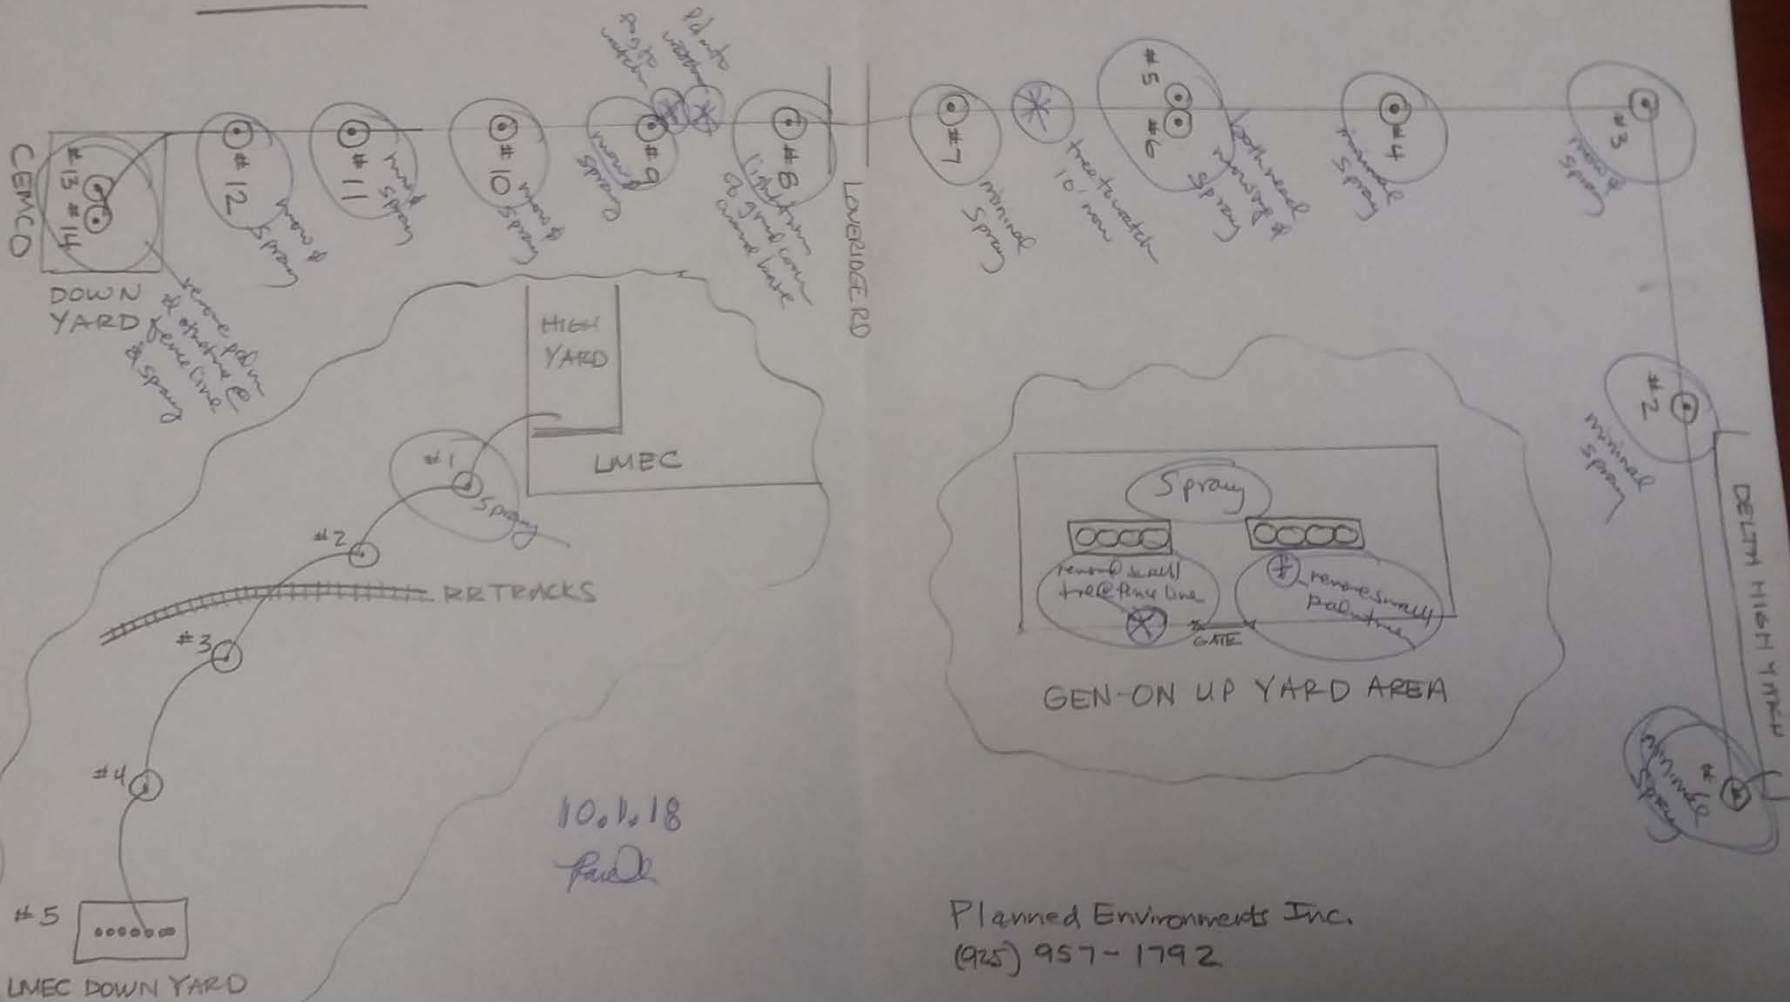 CEMCO
#13
#14
DOWN
YARD
remove palm
fence line
& spray
#12
mow &
spray
#11
mow &
spray
#10
mow &
spray
#9
mow &
spray
palm to
watch
palm to
watch
#8
LOVERIDGE RD
#7
minimal
spray
tree to watch
10' now
#5
#6
both need
mowing &
spray
#4
minimal
spray
#3
mow &
spray
#2
minimal
spray
DELTA HIGH YARD
#1
minimal
spray
HIGH
YARD
LMEC
#1
spray
#2
RR TRACKS
#3
#4
#5
LMEC DOWN YARD
Spray
remove small
tree @ fence line
remove small
palm tree
GATE
GEN-ON UP YARD AREA
10.1.18
Planned Environments Inc.
(925) 957-1792